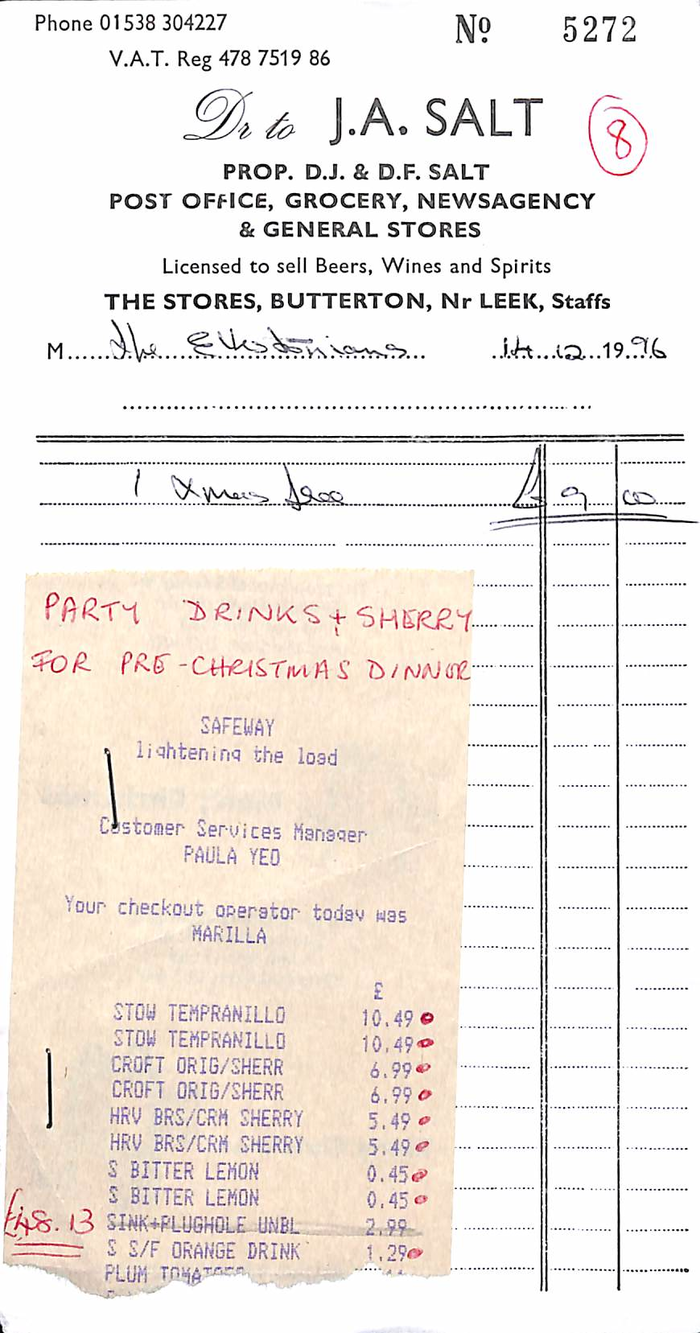 Phone 01538 304227
Nº 5272
V.A.T. Reg 478 7519 86
Dr to J.A. SALT
8
PROP. D.J. & D.F. SALT
POST OFFICE, GROCERY, NEWSAGENCY
& GENERAL STORES
Licensed to sell Beers, Wines and Spirits
THE STORES, BUTTERTON, Nr LEEK, Staffs
M......the Elkstonians... .14..12..19.96
1 Xmas tree £ 9 00
PARTY DRINKS + SHERRY
FOR PRE-CHRISTMAS DINNER
SAFEWAY
lightening the load
Customer Services Manager
PAULA YEO
Your checkout operator today was
MARILLA
£
STOW TEMPRANILLO 10.49
STOW TEMPRANILLO 10.49
CROFT ORIG/SHERR 6.99
CROFT ORIG/SHERR 6.99
HRV BRS/CRM SHERRY 5.49
HRV BRS/CRM SHERRY 5.49
S BITTER LEMON 0.45
S BITTER LEMON 0.45
£48.13 SINK+PLUGHOLE UNBL 2.99
S S/F ORANGE DRINK 1.29
PLUM TOMATOES